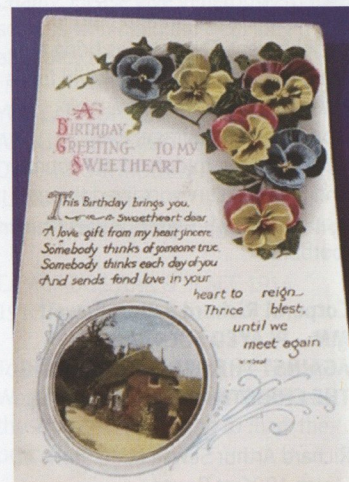 A
BIRTHDAY
GREETING TO MY
SWEETHEART
This Birthday brings you,
Sweetheart dear
A love gift from my heart sincere
Somebody thinks of someone true,
Somebody thinks each day of you
And sends fond love in your
heart to reign
Thrice blest,
until we
meet again